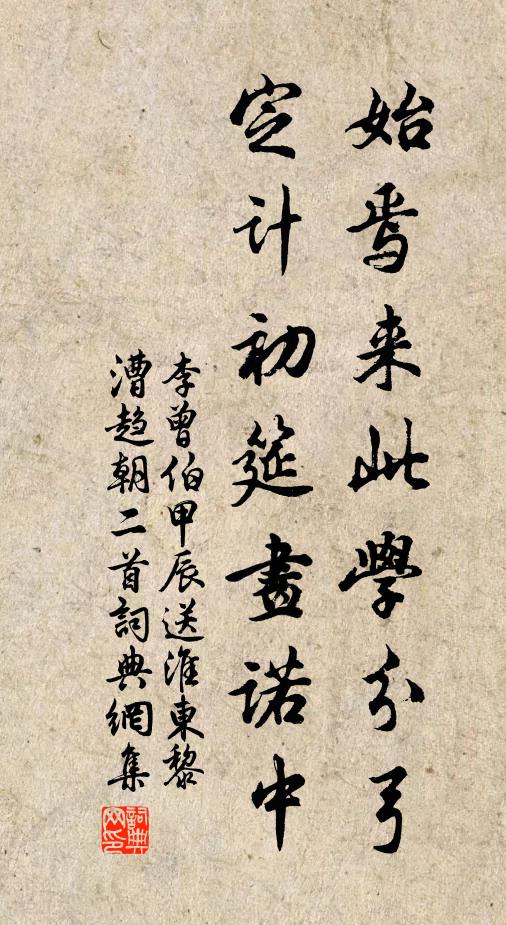 始焉来此學分弓
定计初筵畫諾中
李曾伯甲辰送淮東黎
漕趋朝二首詞典網集
詞典网印